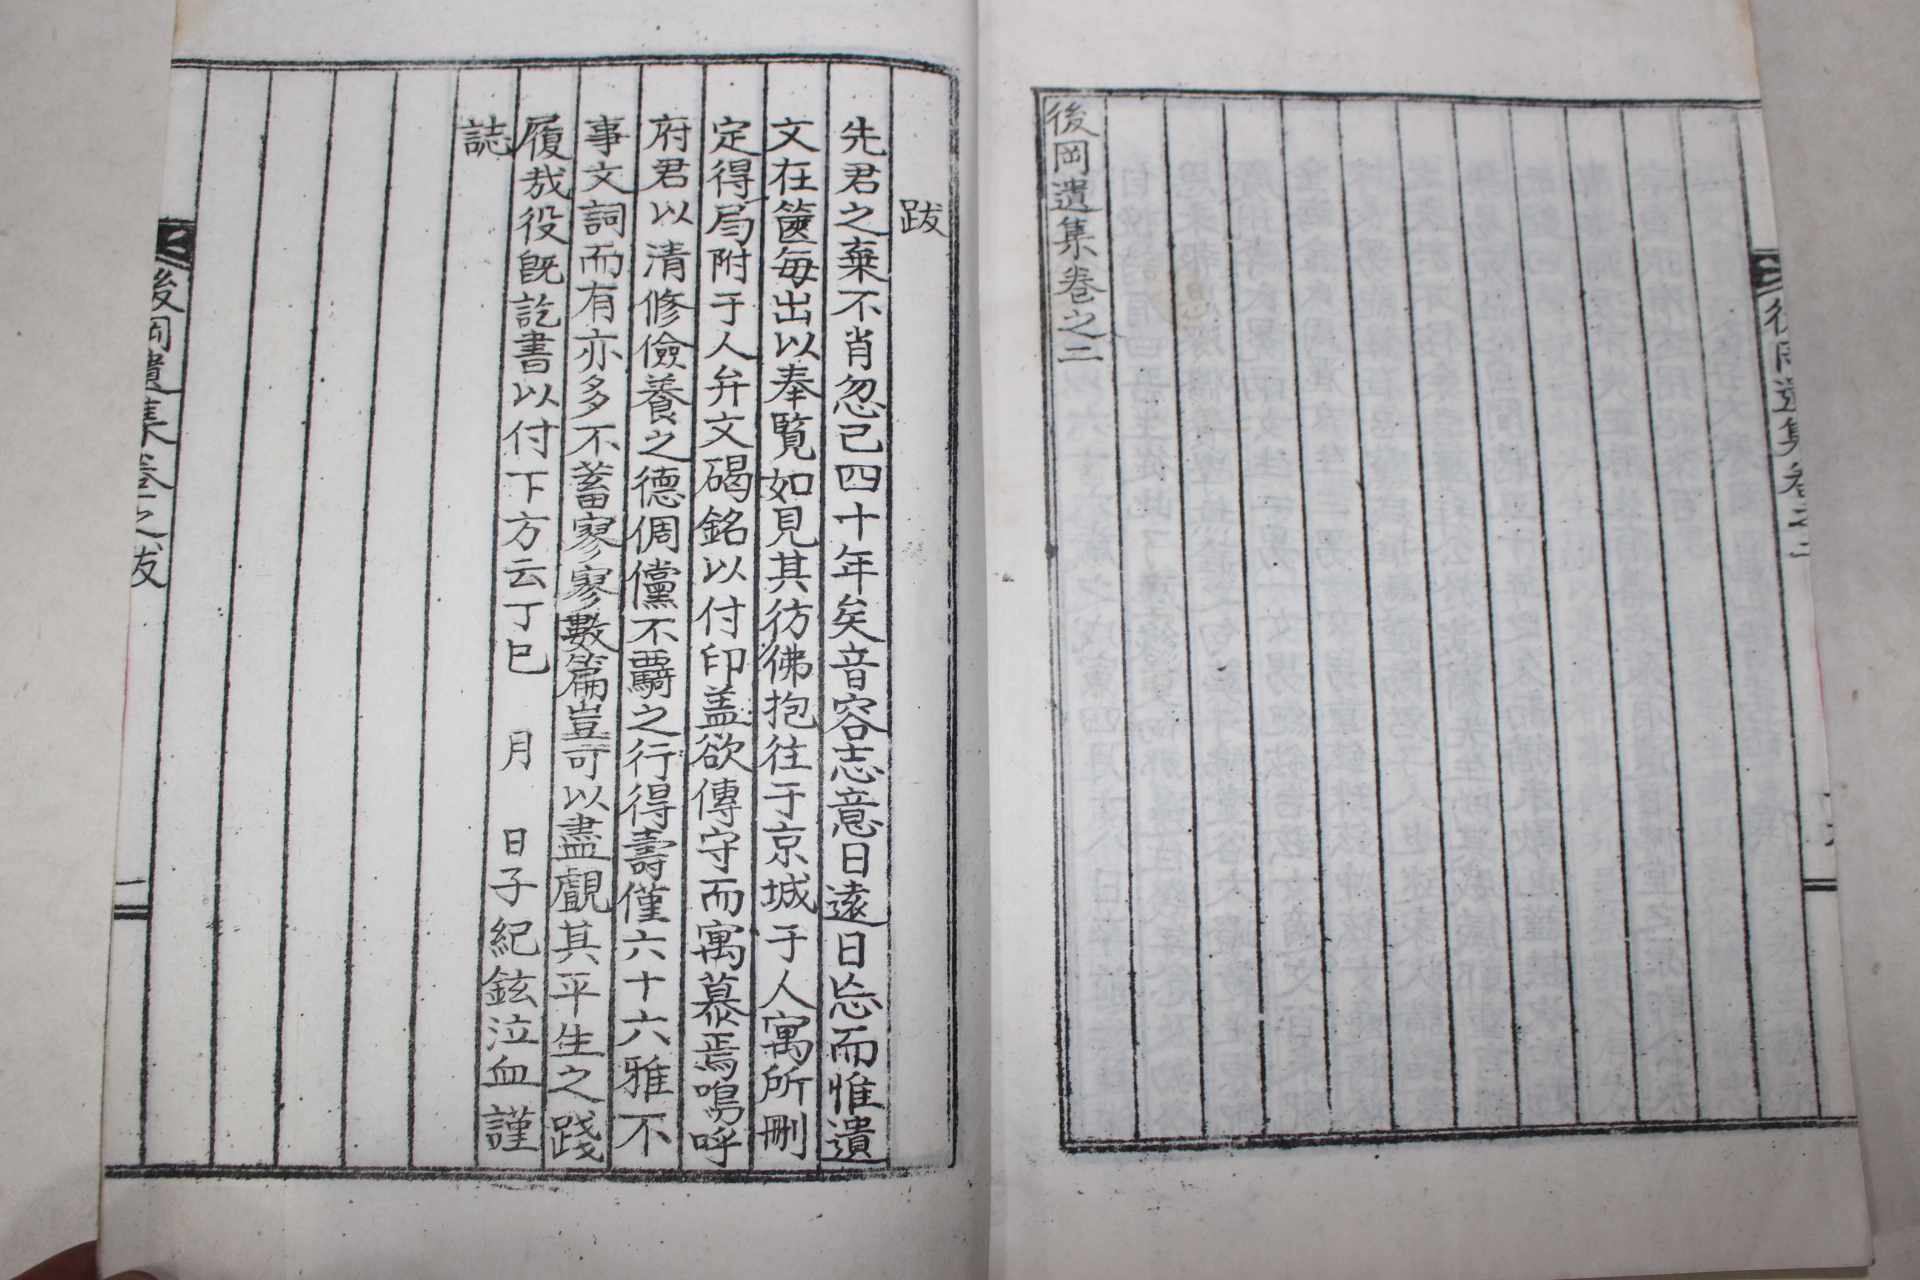 後岡遺集卷之二
跋
先君之棄不肖忽已四十年矣音容志意日遠日忘而惟遺
文在篋每出以奉覧如見其彷彿抱往于京城于人寓所刪
定得局附于人弁文碣銘以付印盖欲傳守而寓慕焉嗚呼
府君以清修儉養之德倜儻不羈之行得壽僅六十六雅不
事文詞而有亦多不蓄寥寥數篇豈可以盡覰其平生之踐
履哉役旣訖書以付下方云丁巳 月 日子紀鉉泣血謹
誌
後岡遺集卷之跋 一
後岡遺集卷之二